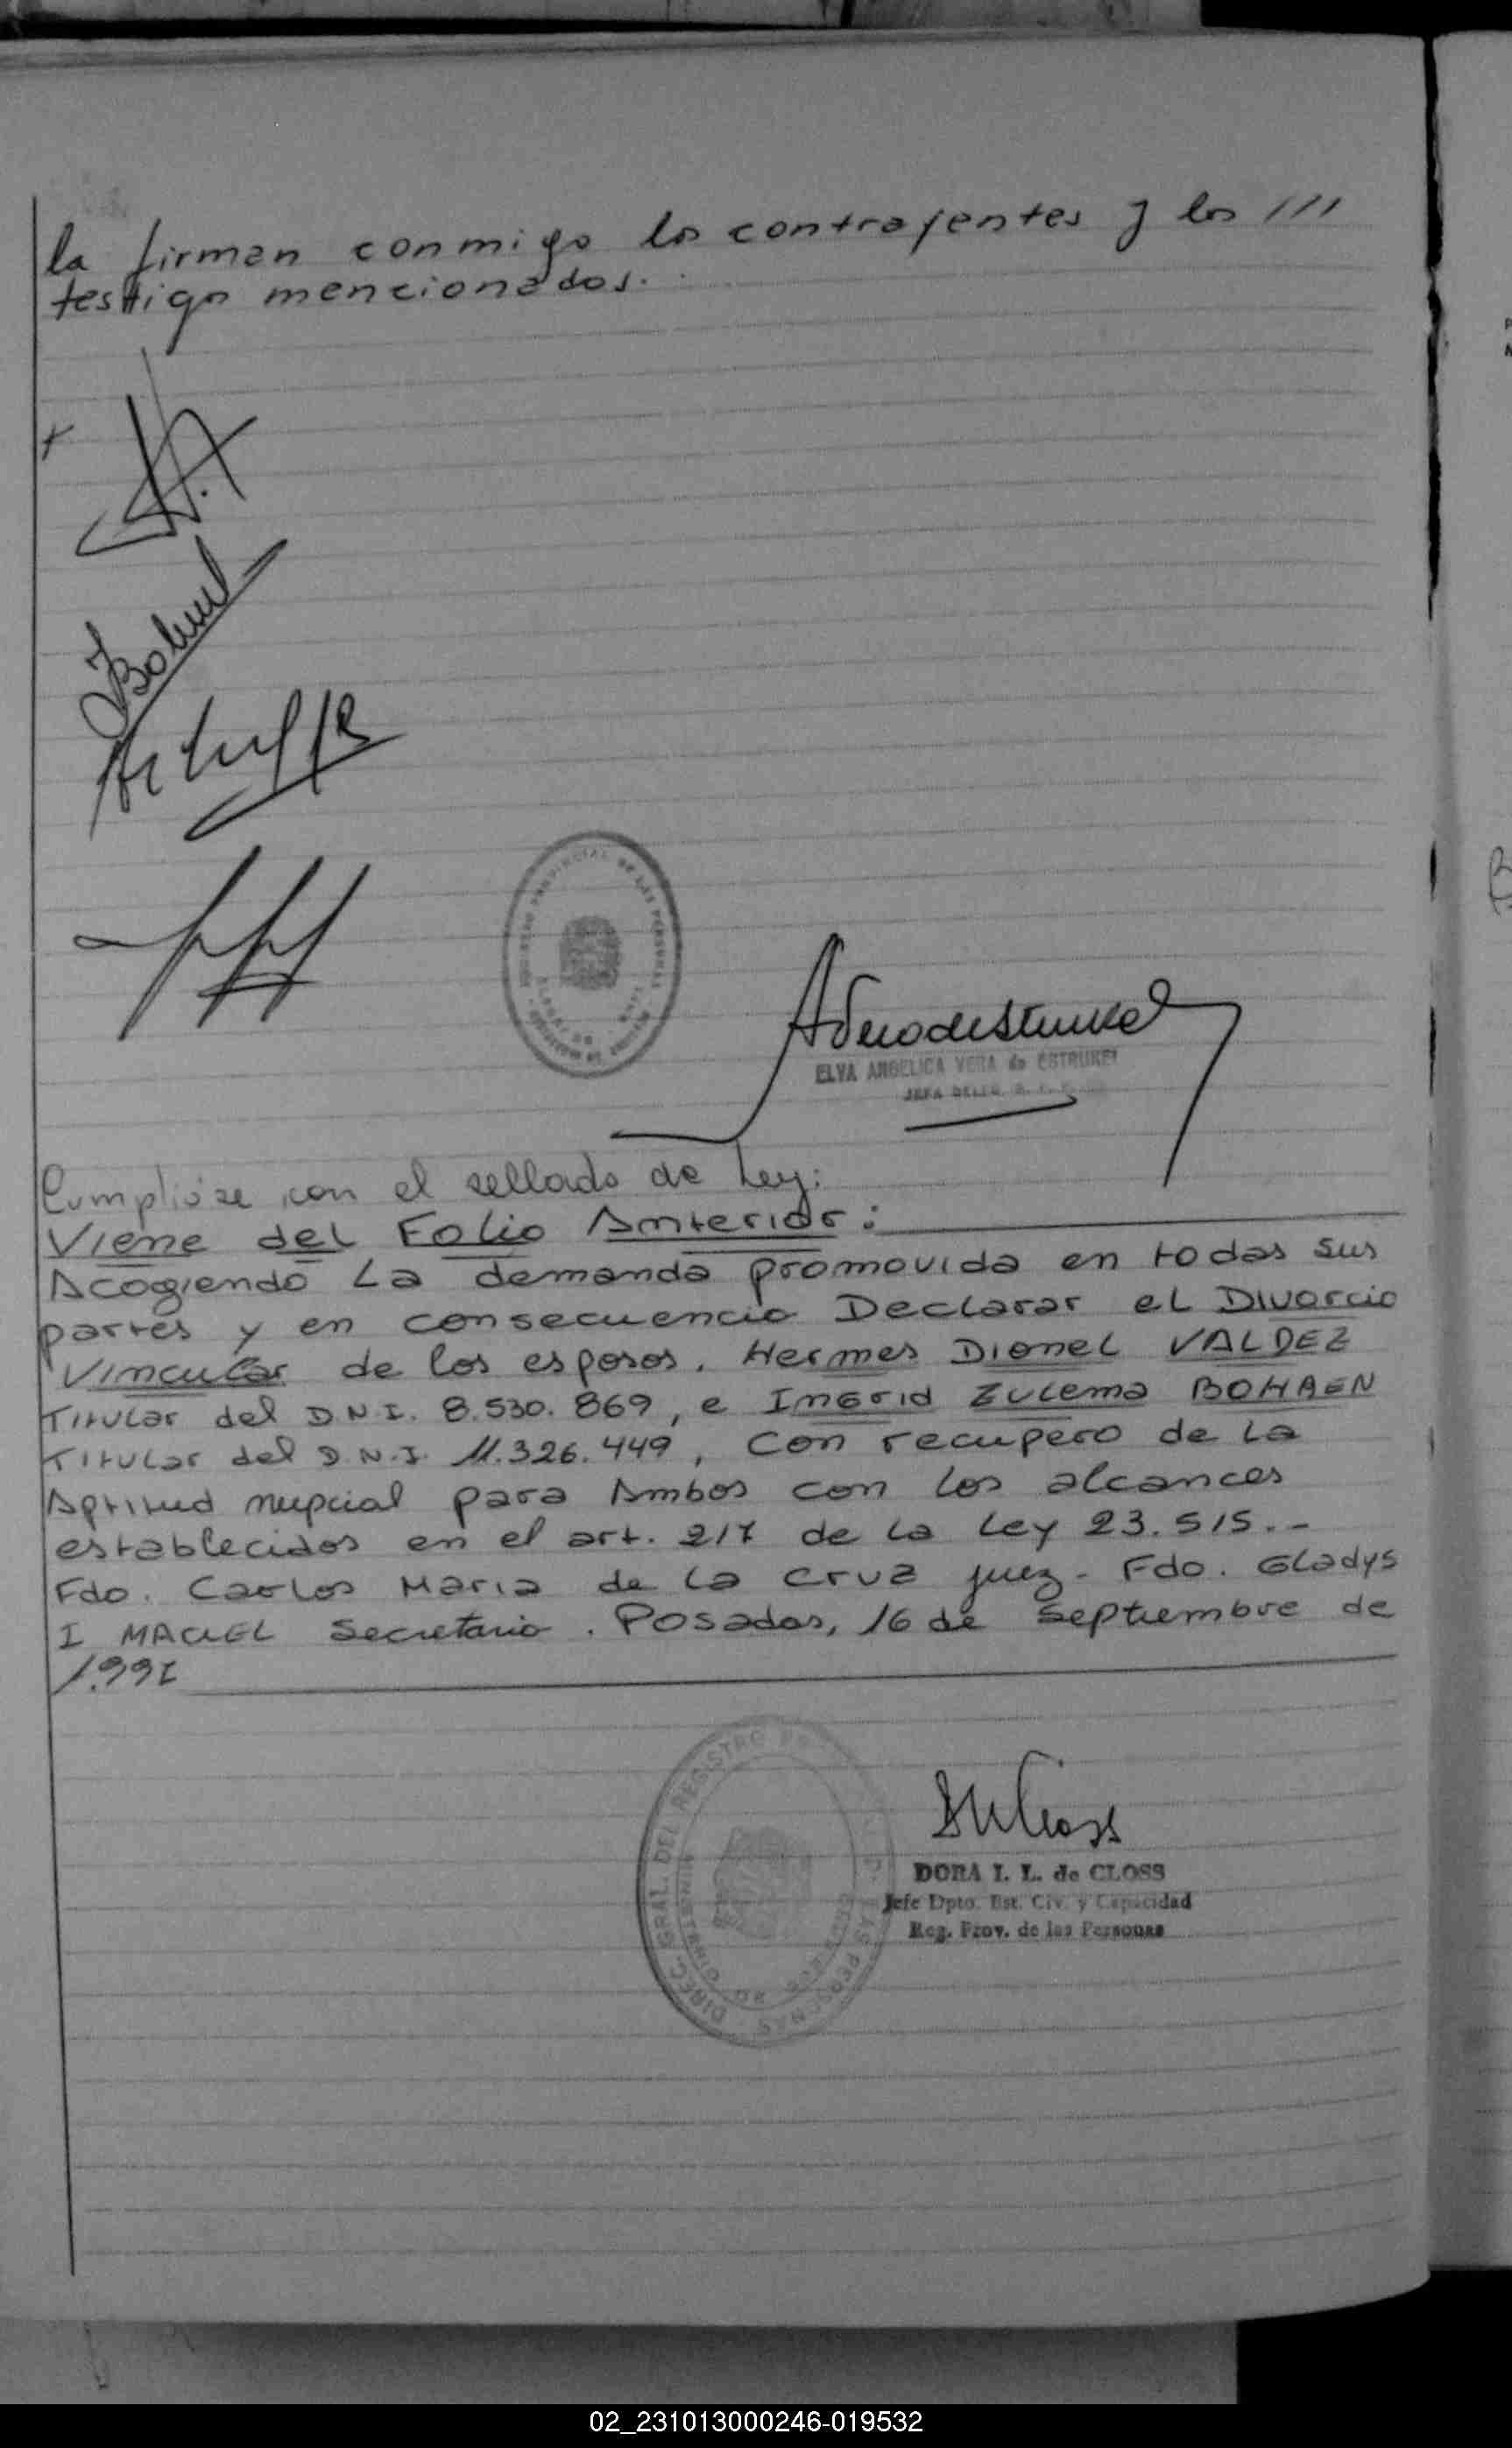 la firman conmigo los contrayentes y los ///
testigos mencionados.
REGISTRO PROVINCIAL DE LAS PERSONAS
ELVA ANGELICA VERA de ESTRUKEL
JEFA DELEG.
Cumplióse con el sellado de Ley:
Viene del Folio Anterior:
Acogiendo La demanda promovida en todas sus
partes y en consecuencia Declarar el Divorcio
Vincular de los esposos. Hermes Dionel VALDEZ
Titular del D.N.I. 8.530.869, e Ingrid Zulema BOHAEN
Titular del D.N.I. 11.326.449, Con recupero de la
Aptitud nupcial para Ambos con los alcances
establecidos en el art. 217 de la Ley 23.515.-
Fdo. Carlos Maria de la Cruz juez- Fdo. Gladys
I MACIEL Secretario. Posadas, 16 de Septiembre de
1.991
DIREC. GRAL. DEL REGISTRO DE LAS PERSONAS
DORA I. L. de CLOSS
Jefe Dpto. Est. Civ. y Capacidad
Reg. Prov. de las Personas
02_231013000246-019532